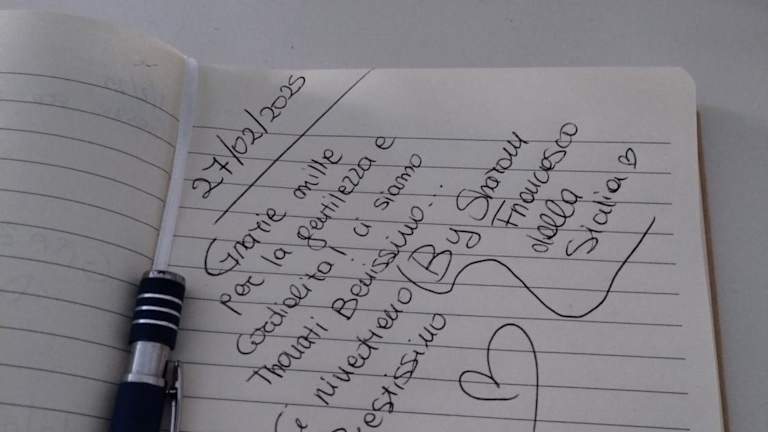 27/02/2025
Grazie mille
per la gentilezza e
Cordialità! ci siamo
Trovati Benissimo...
Ci rivedremo
Prestissimo
(By Sharon
Francesco
dalla
Sicilia